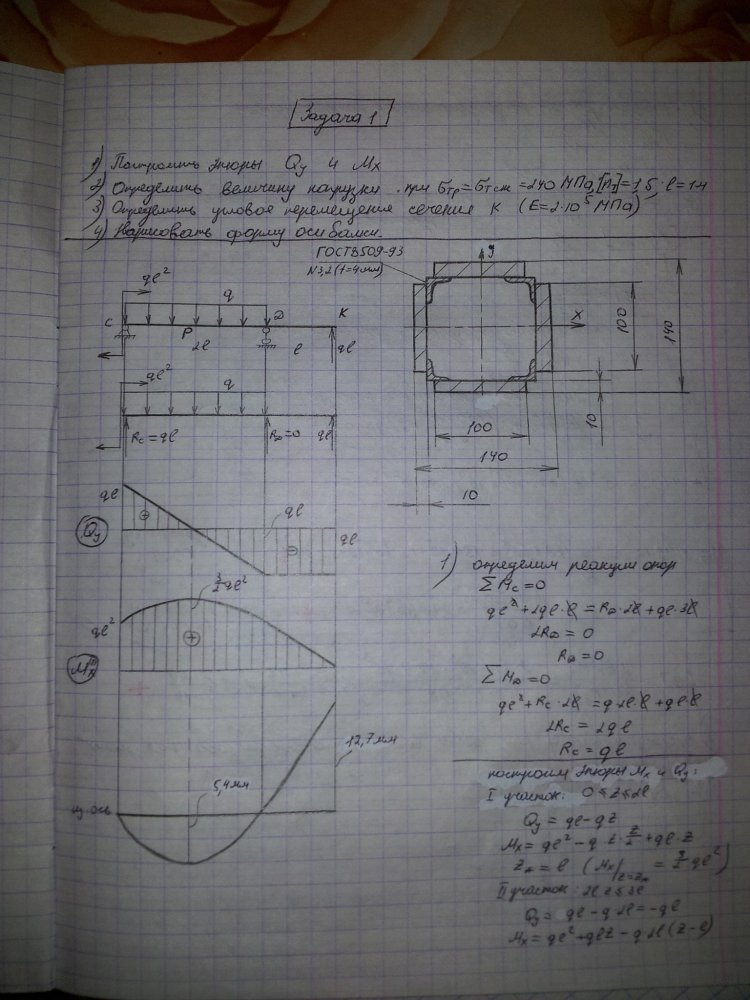 Задача 1
1) Построить эпюры Qy и Mx
2) Определить величину нагрузки при σтр=σтсж=240 МПа, [nт]=1,5, l=1м
3) Определить угловое перемещение сечения K (E=2·10⁵ МПа)
4) Нарисовать форму оси балки.
ГОСТ 8509-93
N3,2 (t=4мм)
y
ql²
q
C
D
K
P
2l
l
ql
x
100
140
10
100
140
10
ql²
q
Rc=ql
RD=0
ql
ql
ql
ql
Qy
⊕
⊖
3/2 ql²
ql²
⊕
Mx
12,7мм
5,4мм
ось
1) определим реакции опор
∑Mc=0
ql²+2ql·l=RD·2l+ql·3l
2RD=0
RD=0
∑MD=0
ql²+Rc·2l=q·2l·l+ql·l
2Rc=2ql
Rc=ql
построим эпюры Mx и Qy:
I участок: 0≤z≤2l
Qy=ql-qz
Mx=ql²-q·z·z/2+ql·z
z=l (Mx|z=z = 3/2 ql²)
II участок: 2l≤z≤3l
Qy=ql-q·2l=-ql
Mx=ql²+qlz-q·2l(z-l)